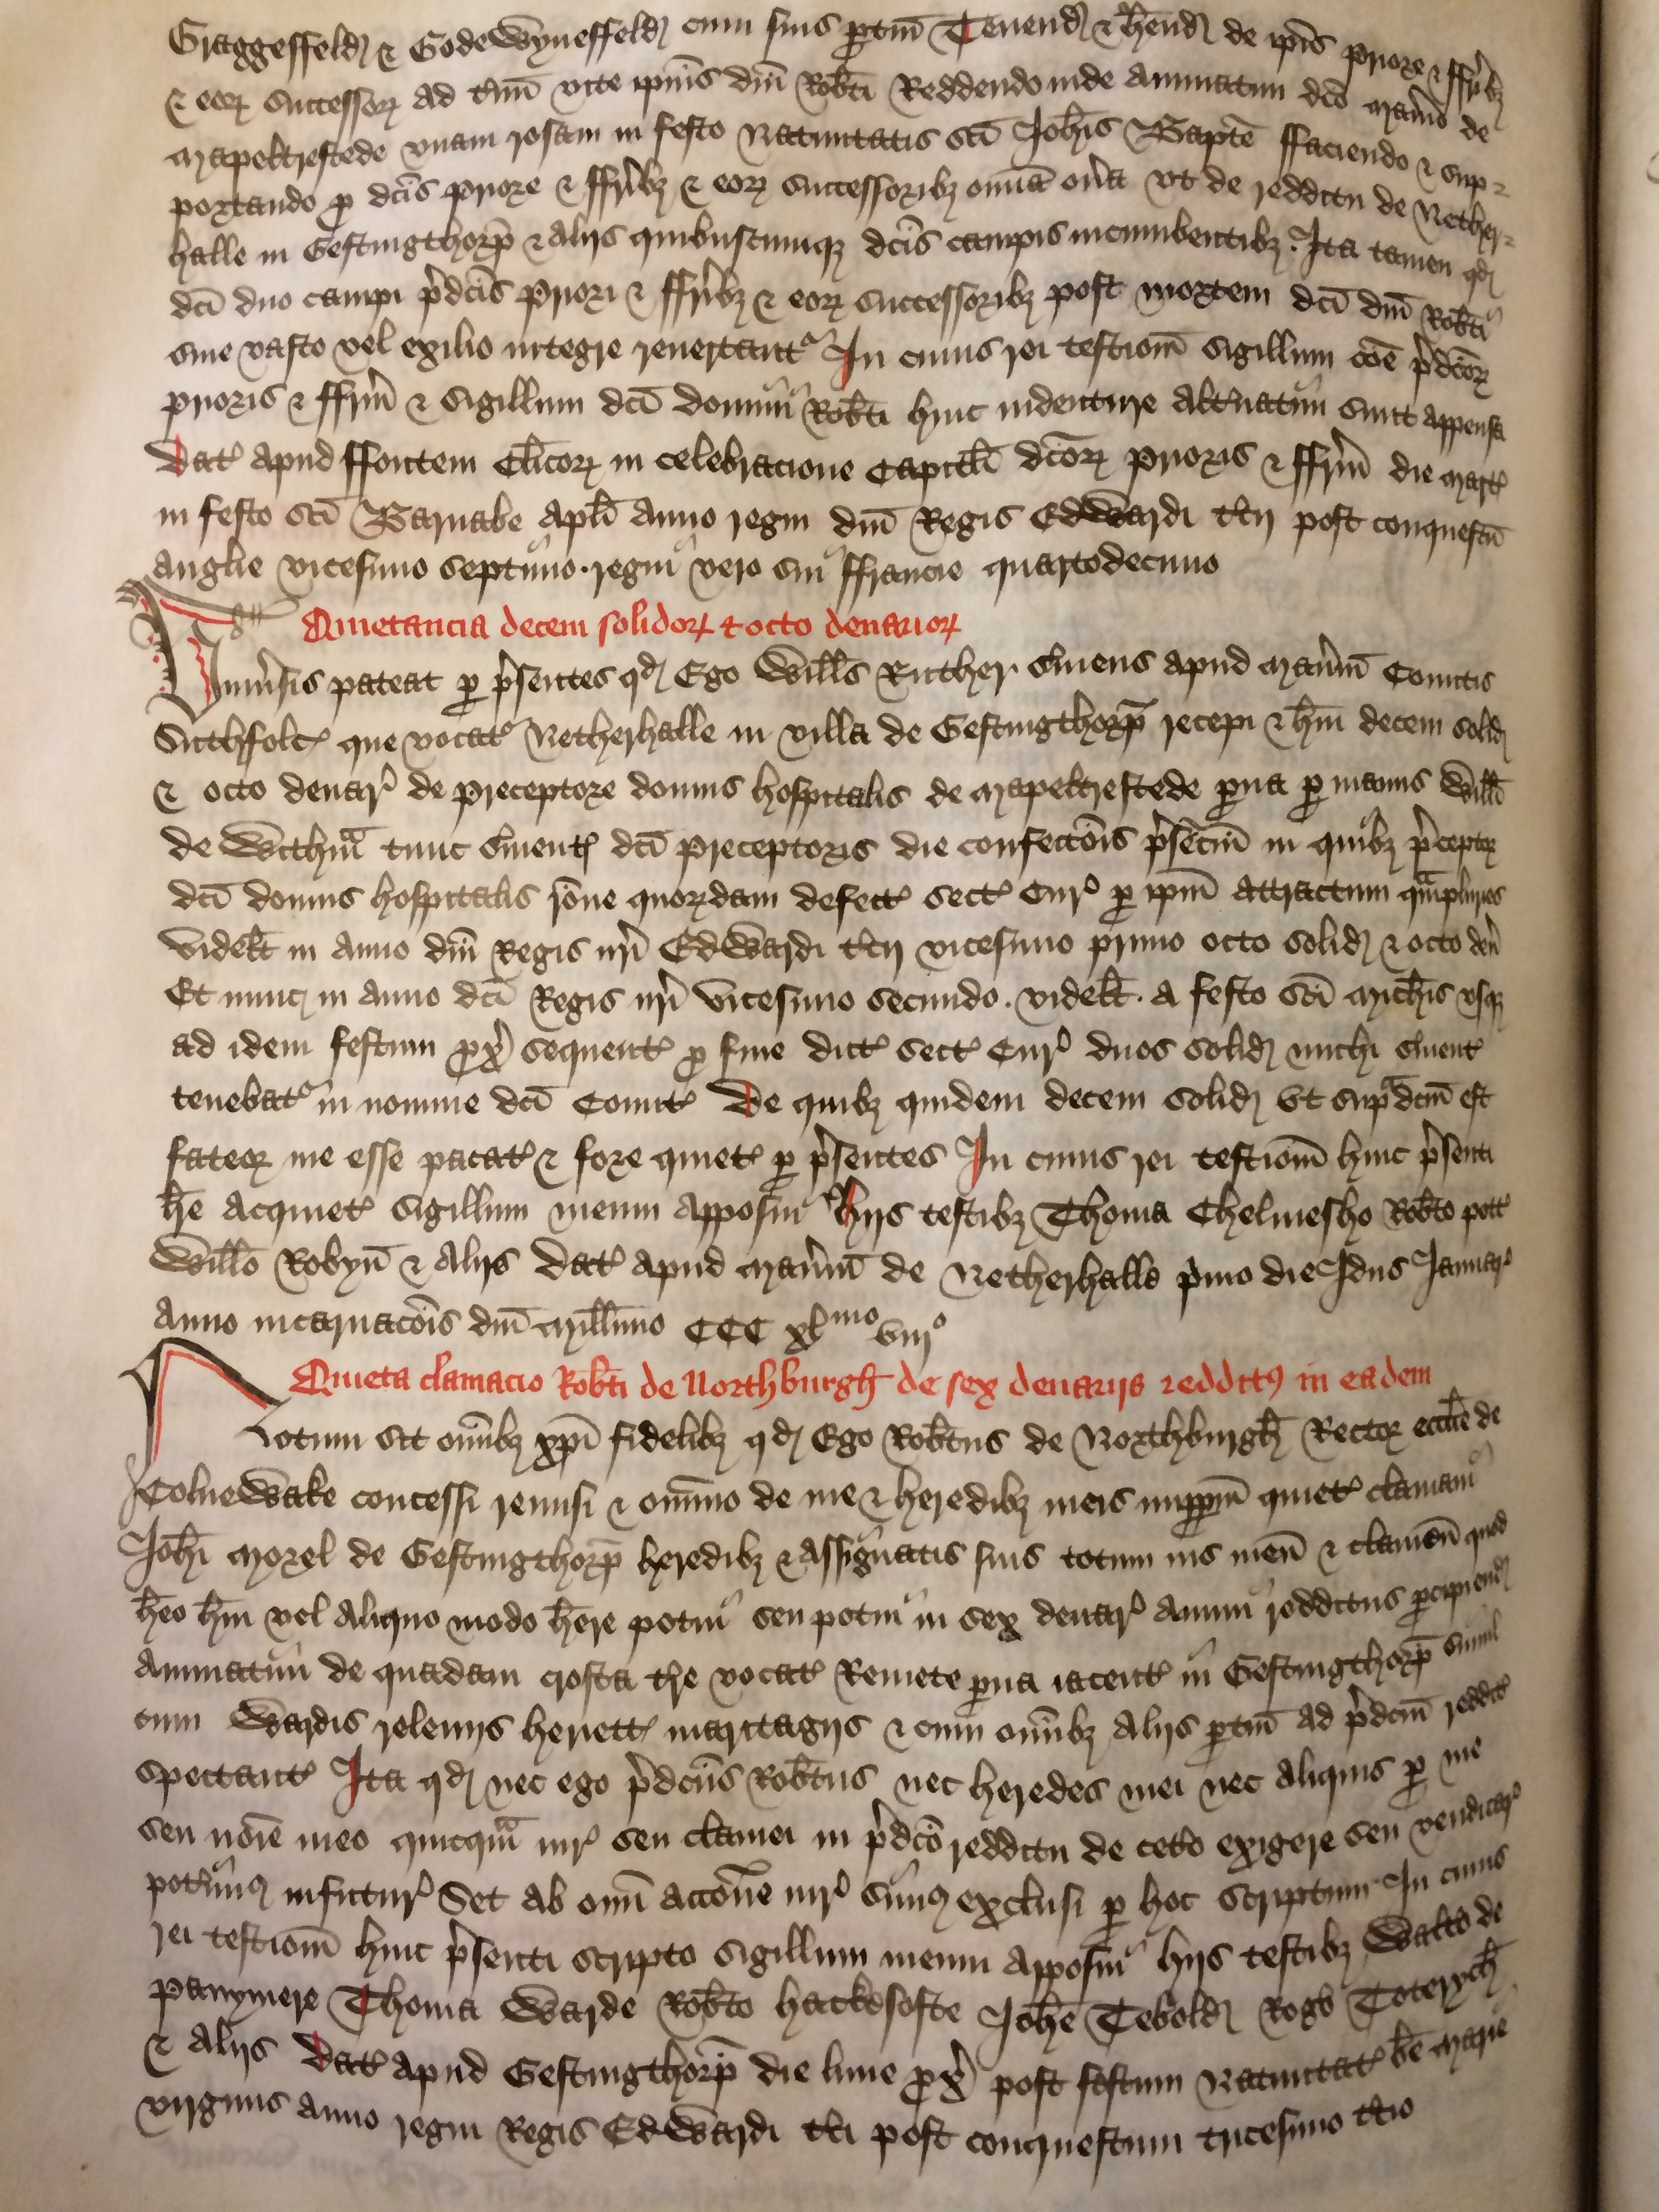 Graggesfeld & Godewynesfeld cum suis ptin Tenend & hend de ipis priore & ffrib3
& eor successor ad tmi vite ipius dni Robti Reddendo inde annuatim dco manio de
Mapeltrestede vnam rosam in festo Natiuitatis sci Johis Bapte ffaciendo & sup
portando p dcis priore & ffrib3 & eor successorib3 omia onera vt de redditu de Nether
halle in Gestingthorp & alijs quibuscumq3 dcis campis incumbentib3. Ita tamen qd
dci duo campi pdcis Priori & ffrib3 & eor successorib3 post mortem dci dni Robti
sine vasto vel exilio integre reuertant In cuius rei testiom sigillum coe pdcor
prioris & ffrm & sigillum dci domini Robti huic indenture altnatim sunt appensa
Dat apud ffontem Clicor in celebracione Capitli dcor prioris & ffrm die mart
in festo sci Barnabe apli anno regni dni Regis Edwardi tcij post conquestu
anglie vicesimo septimo. regni vero sui ffrancie quartodecimo
Quietancia decem solidor & octo denarior
Vniusis pateat p psentes qd Ego Wills Ruther seruiens apud maniu Comitis
Suthfolc que vocat Netherhalle in villa de Gestingthorp recepi & hui decem solid
& octo denar de preceptore domus hospitalis de Mapeltrestede pua p manus Willi
de Withma tunc seruient dci preceptoris die confeccois psenciu in quib3 pceptor
dci domus hospitalis rone quordam defect sect Cur p ipm attractum qmplures
videlt in anno dni Regis nri Edwardi tcij vicesimo primo octo solid & octo den
Et nunc in anno dci Regis nri vicesimo secundo. videlt. a festo sci Michis vsq3
ad idem festum px sequent p fine dict sect Cur duos solid michi seruient
tenebat in nomine dci Comit De quib3 quidem decem solid vt supdcm est
fateor me esse pacat & fore quiet p psentes In cuius rei testiom huic psenti
he acquiet sigillum meum apposui hijs testib3 Thoma Chelmesho Robto pott
Willo Robyn & alijs Dat apud maniu de Netherhalle pmo die Idus Januar
Anno incarnacois dni Millimo CCC xlmo viijo
Quieta clamacio Robti de Northburgh de sex denarijs redditus in eadem
Notum sit omib3 xpi fidelib3 qd Ego Robtus de Northburgh Rector ecclie de
Colnewake concessi remisi & omnino de me & heredib3 meis imppm quiet clamaui
Johi Morel de Gestingthorp heredib3 & assignatis suis totum ius meu & clameu quod
heo hui vel aliquo modo here potui seu potui in sex denar annui redditus pcipiend
Annuatim de quadam crofta tre vocat Remete pua iacent in Gestingthorp simul
cum Wardis releuijs heriett maritagijs & cum omib3 alijs ptin ad pdcm reddit
spectant Ita qd nec ego pdcus Robtus nec heredes mei nec aliquis p me
seu noie meo quicqm iur seu clamei in pdco redditu de ceto exigere seu vendicar
potimus infutur Set ab omi accone iur simus exclusi p hoc scriptum In cuius
rei testiom huic psenti scripto sigillum meum apposui hijs testib3 Walto de
Panymere Thoma Warde Robto hackesofte Johe Tebold Rogo Toterych
& alijs Dat apud Gestingthorp die lune px post festum Natiuitat be Marie
virginis anno regni Regis Edwardi tci post conquestum tricesimo tcio